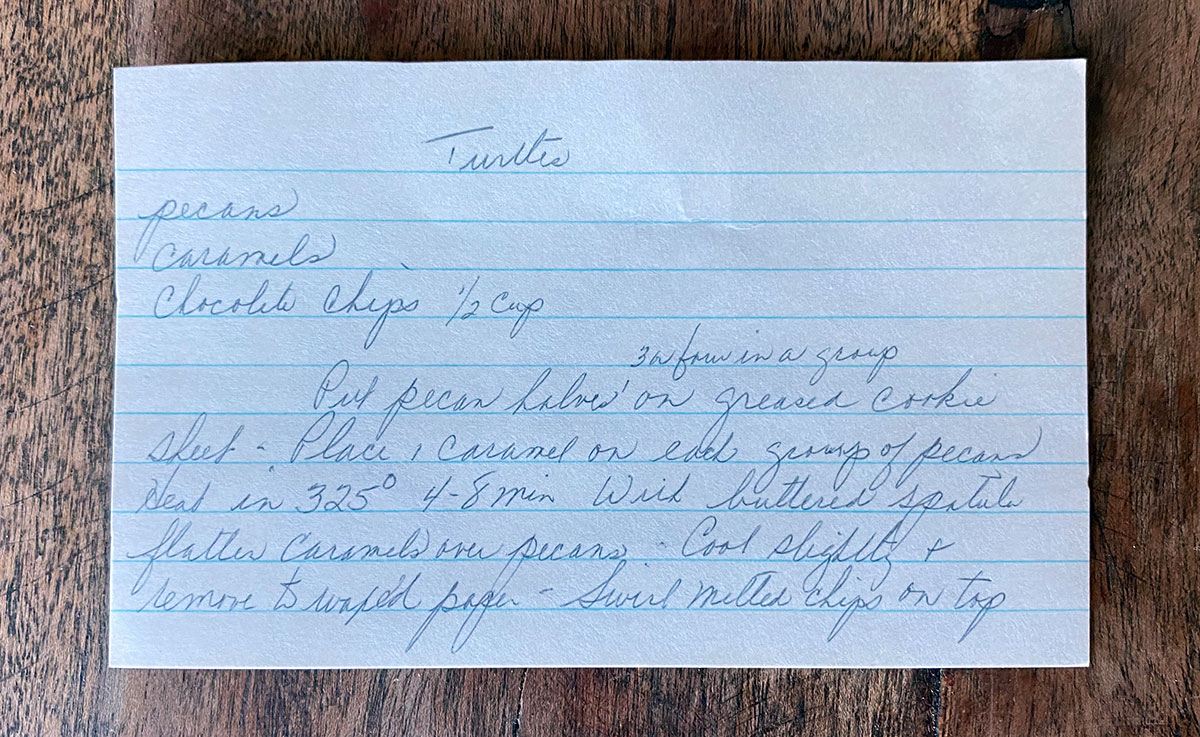 Turtles
pecans
caramels
Chocolate Chips 1/2 Cup
3 or four in a group
Put pecan halves on greased cookie
sheet - Place 1 caramel on each group of pecans
Heat in 325° 4-8 min With buttered spatula
flatten caramels over pecans - Cool slightly &
remove to waxe'd paper - Swirl melted chips on top